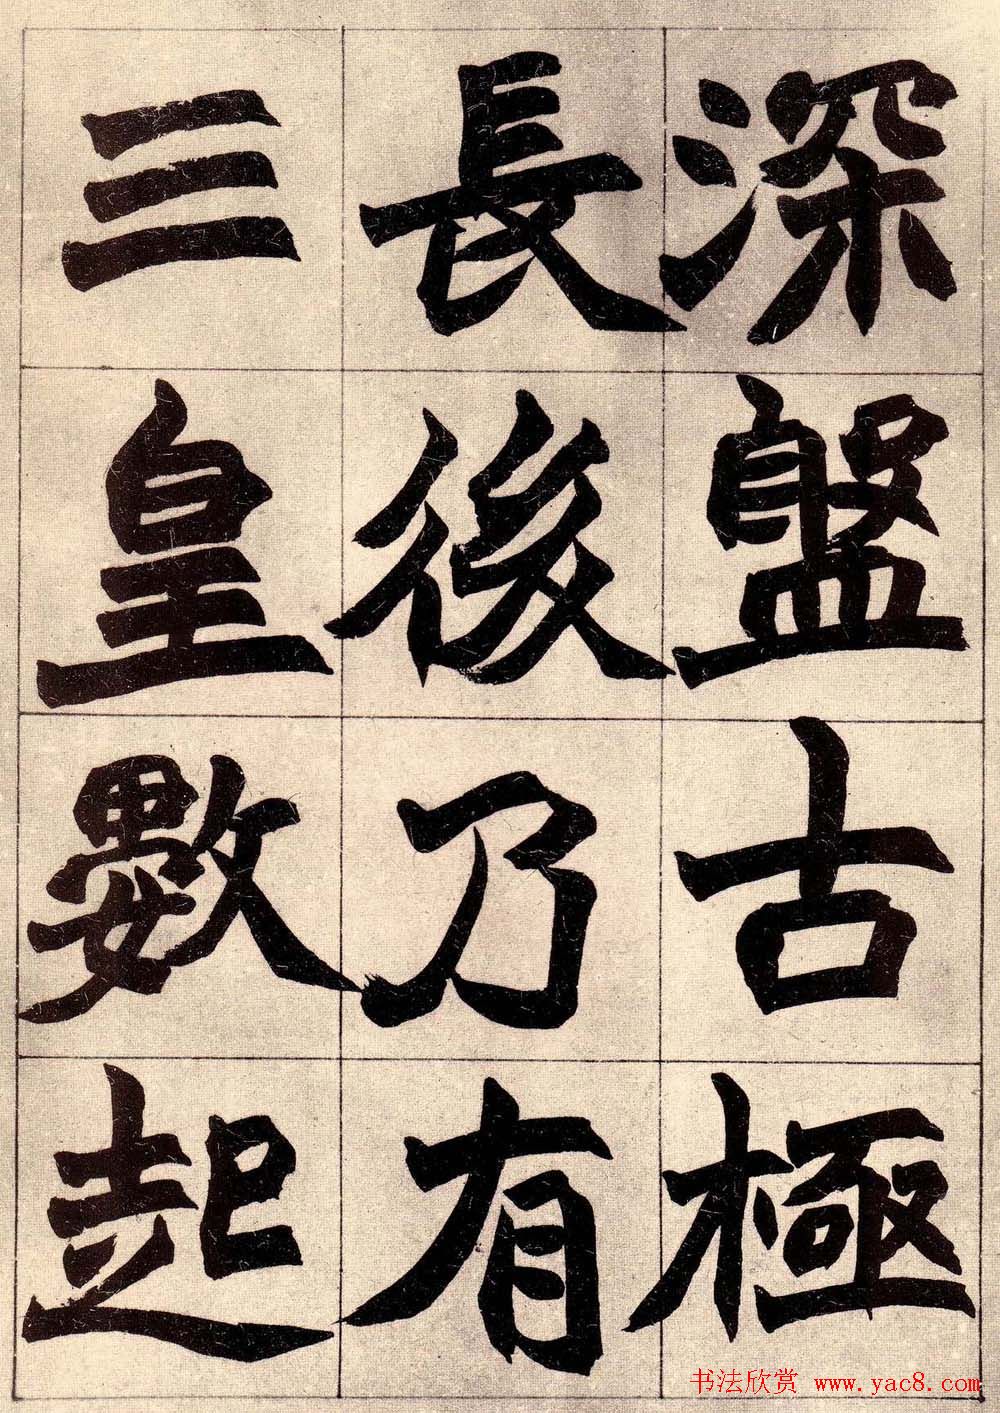 深盤古極
長後乃有
三皇數起
书法欣赏 www.yac8.com